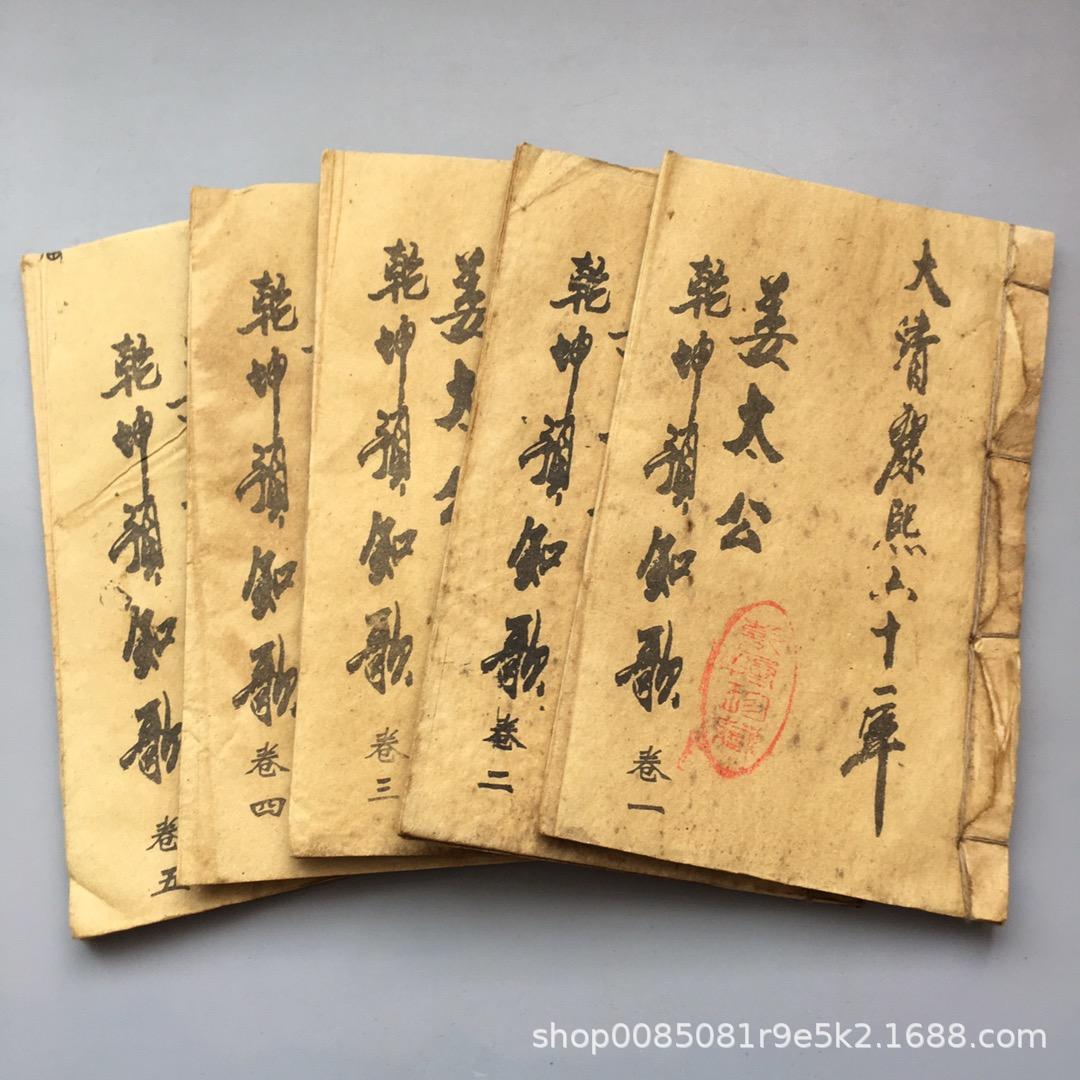 大清康熙六十一年
姜太公
乾坤預知歌 卷一
乾坤預知歌 卷二
姜太公
乾坤預知歌 卷三
乾坤預知歌 卷四
乾坤預知歌 卷五
shop0085081r9e5k2.1688.com